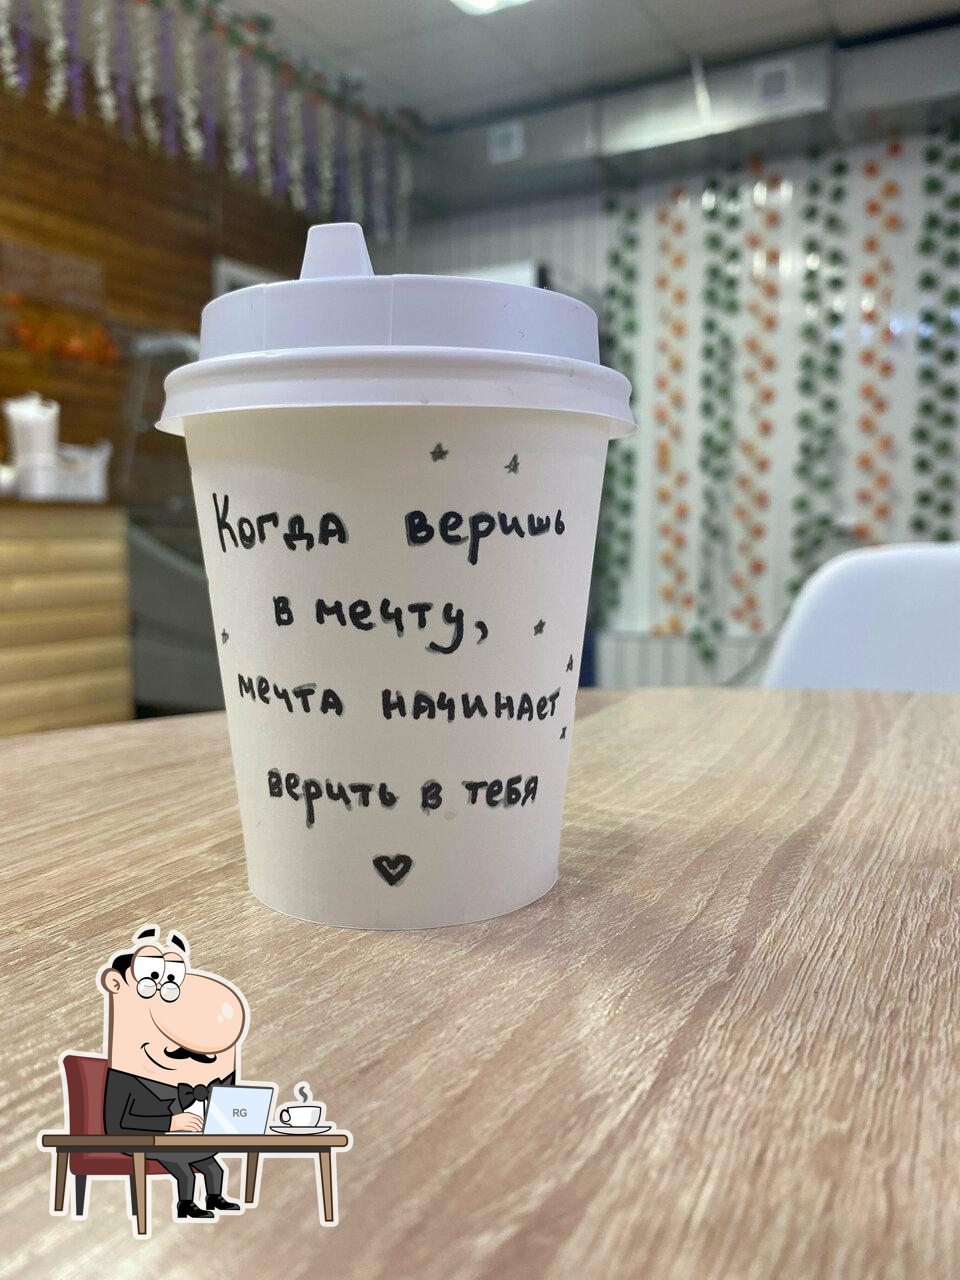 Когда веришь
в мечту,
мечта начинает
верить в тебя
RG